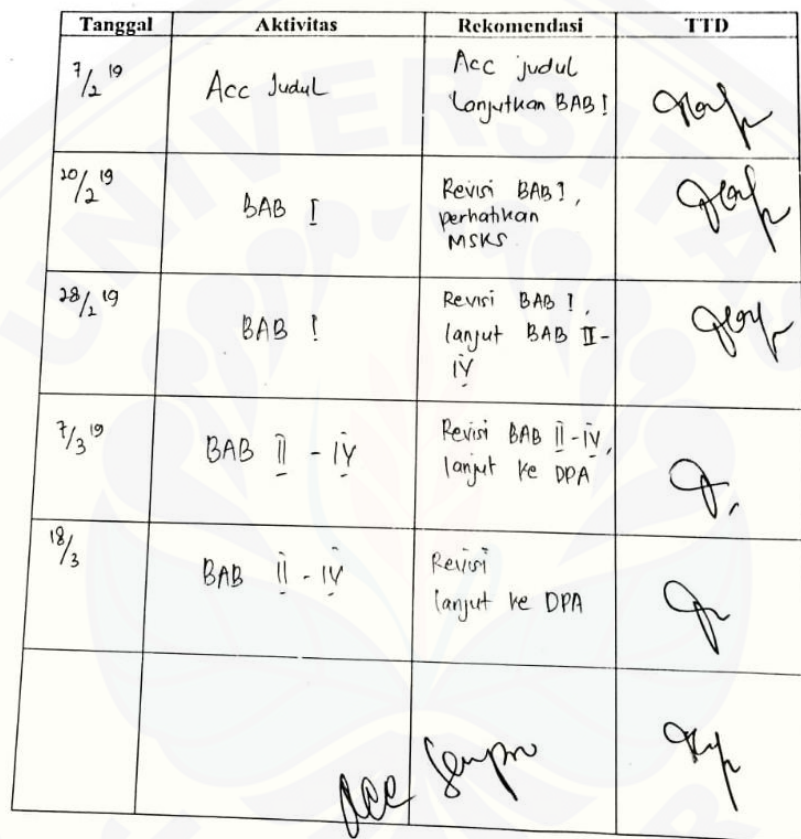 Tanggal Aktivitas Rekomendasi TTD
7/2 19 Acc Judul Acc judul
lanjutkan BAB I
20/2 19 BAB I Revisi BAB I,
perhatikan
MSKS
28/2 19 BAB I Revisi BAB I,
lanjut BAB II-
IV
7/3 19 BAB II - IV Revisi BAB II-IV,
lanjut ke DPA
18/3 BAB II - IV Revisi
lanjut ke DPA
Acc Sempro
UNIVERSITA